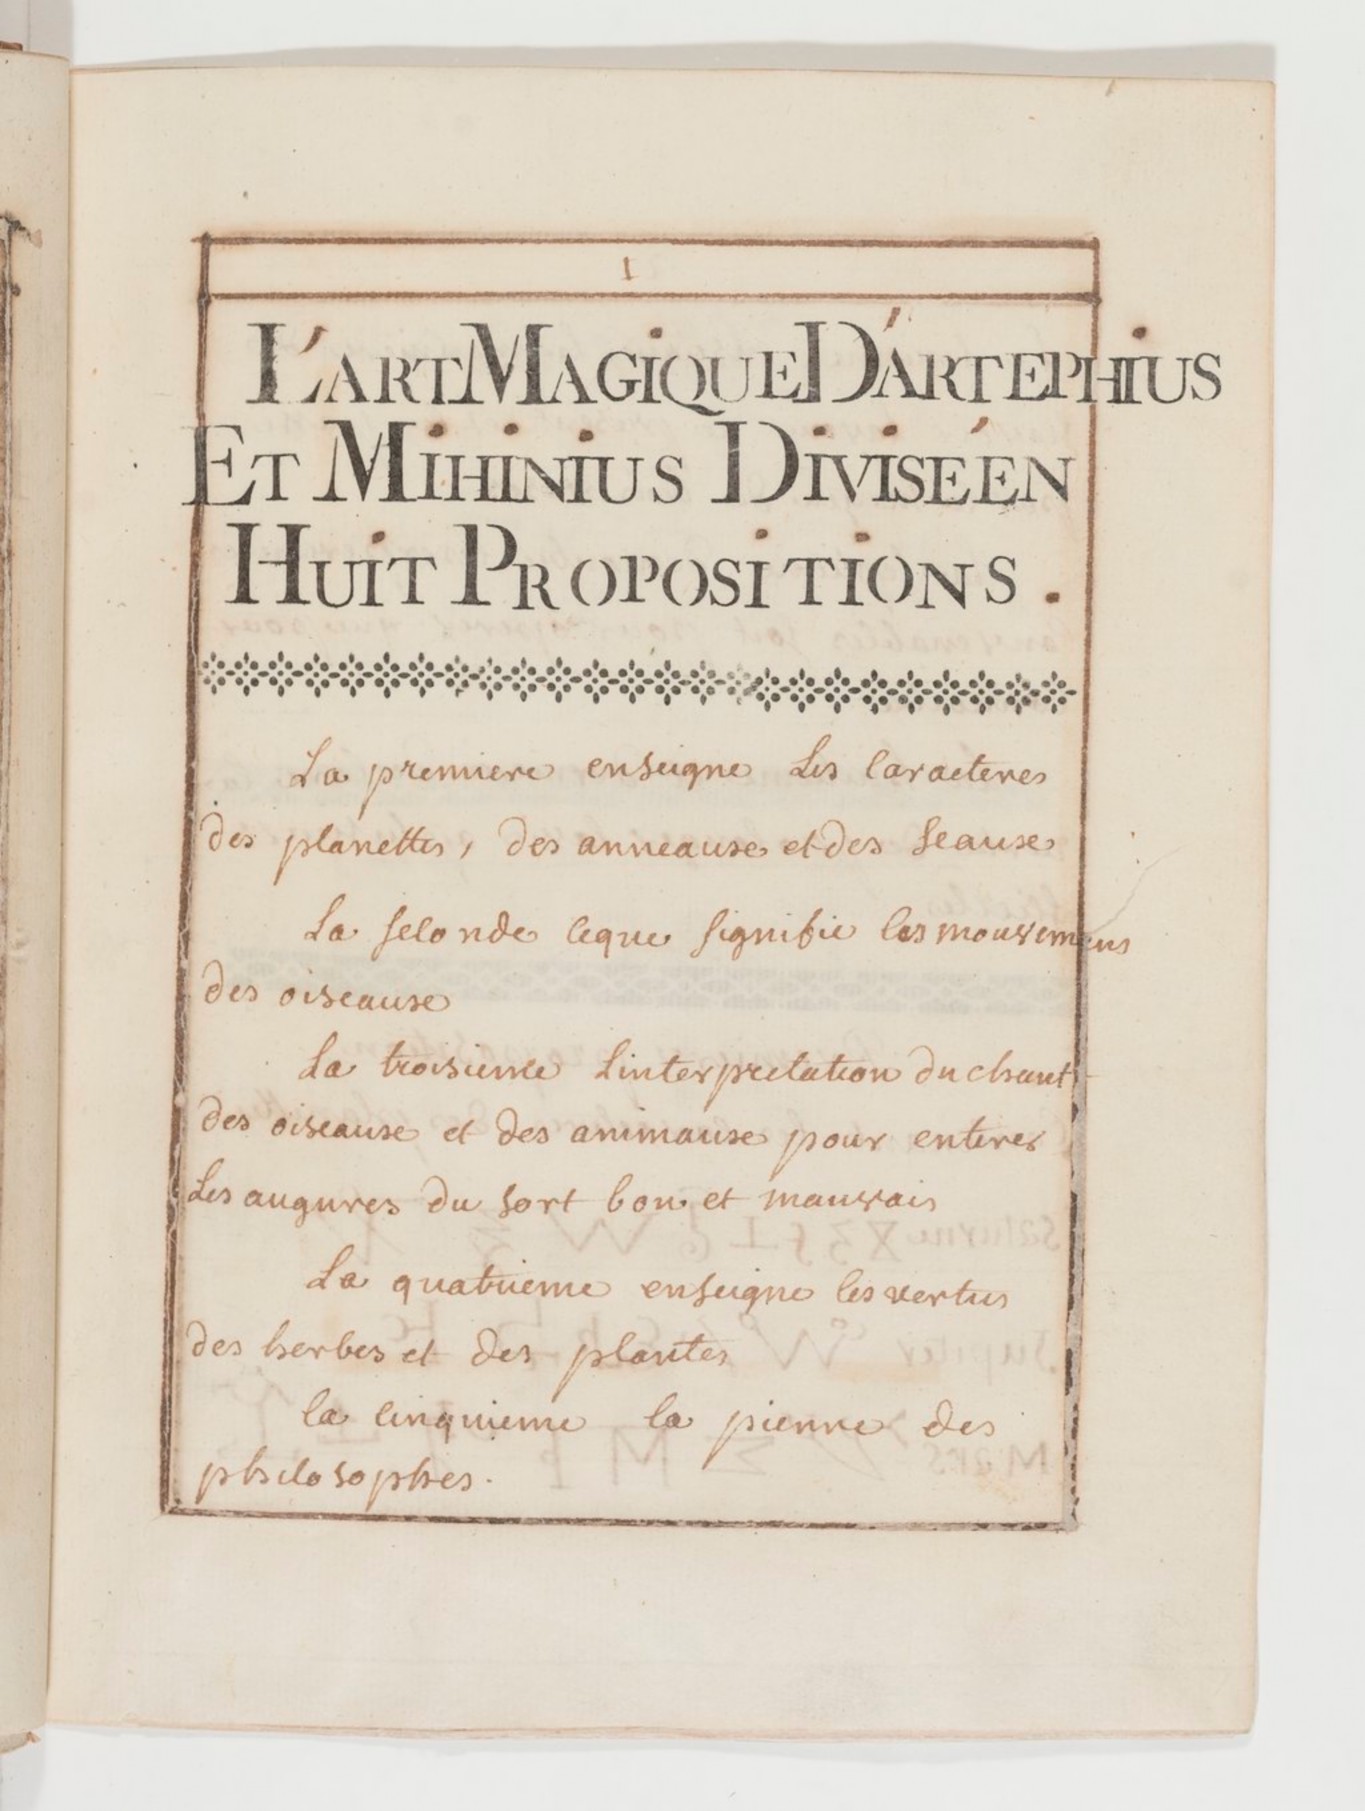 1
L'ART MAGIQUE D'ARTEPHIUS
ET MIHINIUS DIVISÉ EN
HUIT PROPOSITIONS.
La premiere enseigne Les caracteres
des planettes, des anneause et des seause
La seconde ceque signifie les mouvemens
des oiseause
La troisieme Linterpretation du chant
des oiseause et des animause pour entirer
Les augures du sort bon et mauvais
La quatrieme enseigne les vertus
des herbes et des plantes
la cinquieme la pierre des
philosophes.